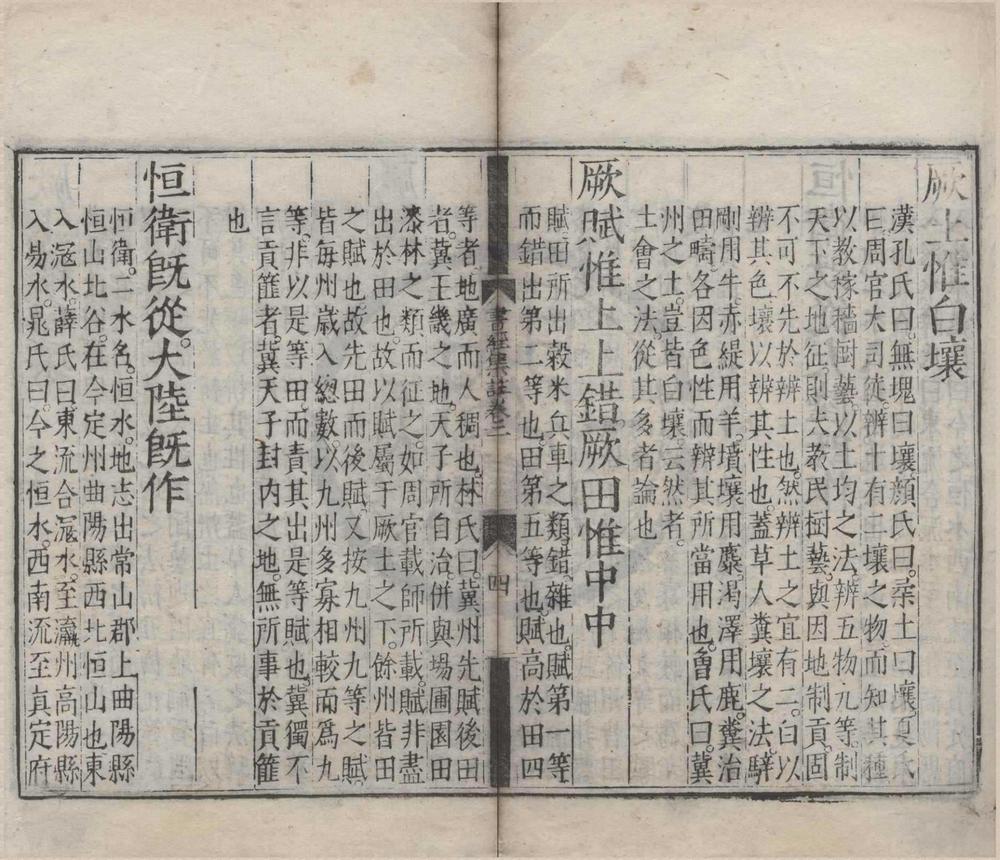 厥土惟白壤
漢孔氏曰。無塊曰壤顏氏曰。柔土曰壤。夏氏
曰周官大司徒辨十有二壤之物而知其種
以教稼穡樹藝以土均之法。辨五物九等。制
天下之地征。則夫教民樹藝。與因地制貢。固
不可不先於辨土也。然辨土之宜有二。白以
辨其色。壤以辨其性也。蓋草人糞壤之法。騂
剛用牛。赤緹用羊。墳壤用麋。渴澤用鹿。糞治
田疇。各因色性而辨其所當用也。曾氏曰。冀
州之土。豈皆白壤。云然者。
土會之法。從其多者論也
厥賦惟上上錯。厥田惟中中
賦田所出穀米兵車之類。錯雜也。賦第一等
而錯出第二等也。田第五等也。賦高於田四
書經集註卷二
四
等者。地廣而人稠也。林氏曰。冀州先賦後田
者。冀王畿之地。天子所自治。併與場圃園田
漆林之類而征之。如周官載師所載。賦非盡
出於田也。故以賦屬于厥土之下。餘州皆田
之賦也故先田而後賦。又按九州九等之賦
皆每州歲入總數。以九州多寡相較而爲九
等。非以是等田。而責其出是等賦也。冀獨不
言貢篚者。冀天子封內之地。無所事於貢篚
也
恒衛旣從。大陸旣作
恒衛。二水名。恒水。地志出常山郡上曲陽縣
恒山北谷。在今定州曲陽縣西北恒山也東
入滱水。薛氏曰。東流合滱水。至瀛州高陽縣
入易水。晁氏曰。今之恒水。西南流至真定府